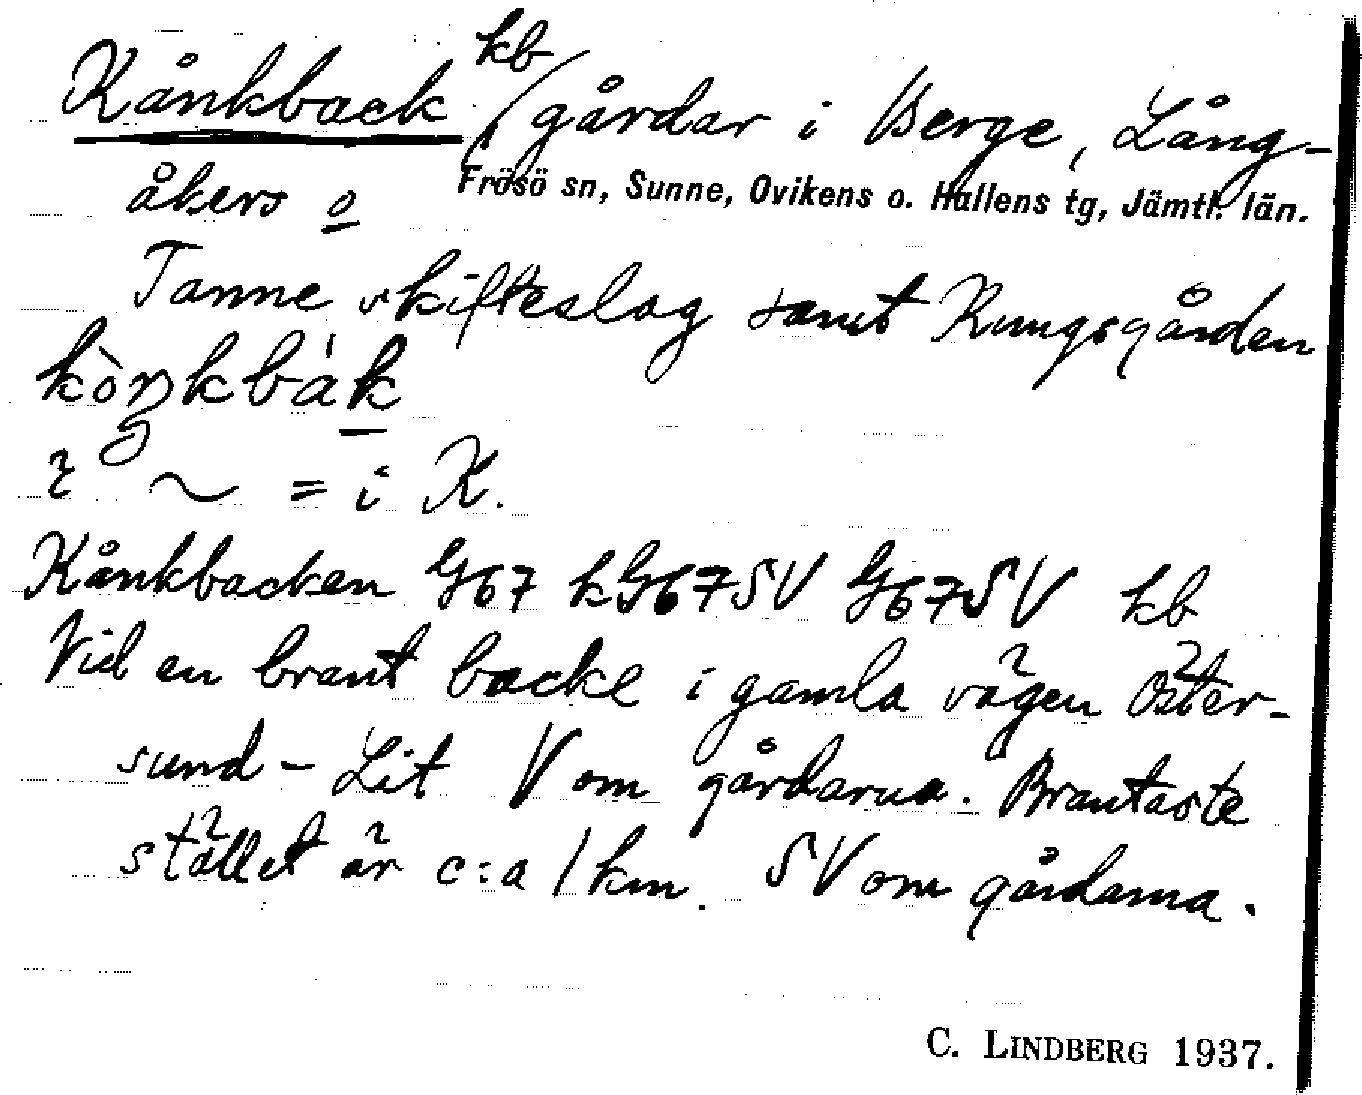 Kånkback kb / gårdar i Berge, Lång-
åkers o Frösö sn, Sunne, Ovikens o. Hallens tg, Jämtl. län.
Tanne skifteslag samt Kungsgården
kòŋkbàk
i ~ = i K.
Kånkbacken G67 kG67SV G67SV kb
Vid en brant backe i gamla vägen Öster-
sund - Lit V om gårdarna. Brantaste
stället är c:a 1 km. SV om gårdarna.
C. LINDBERG 1937.